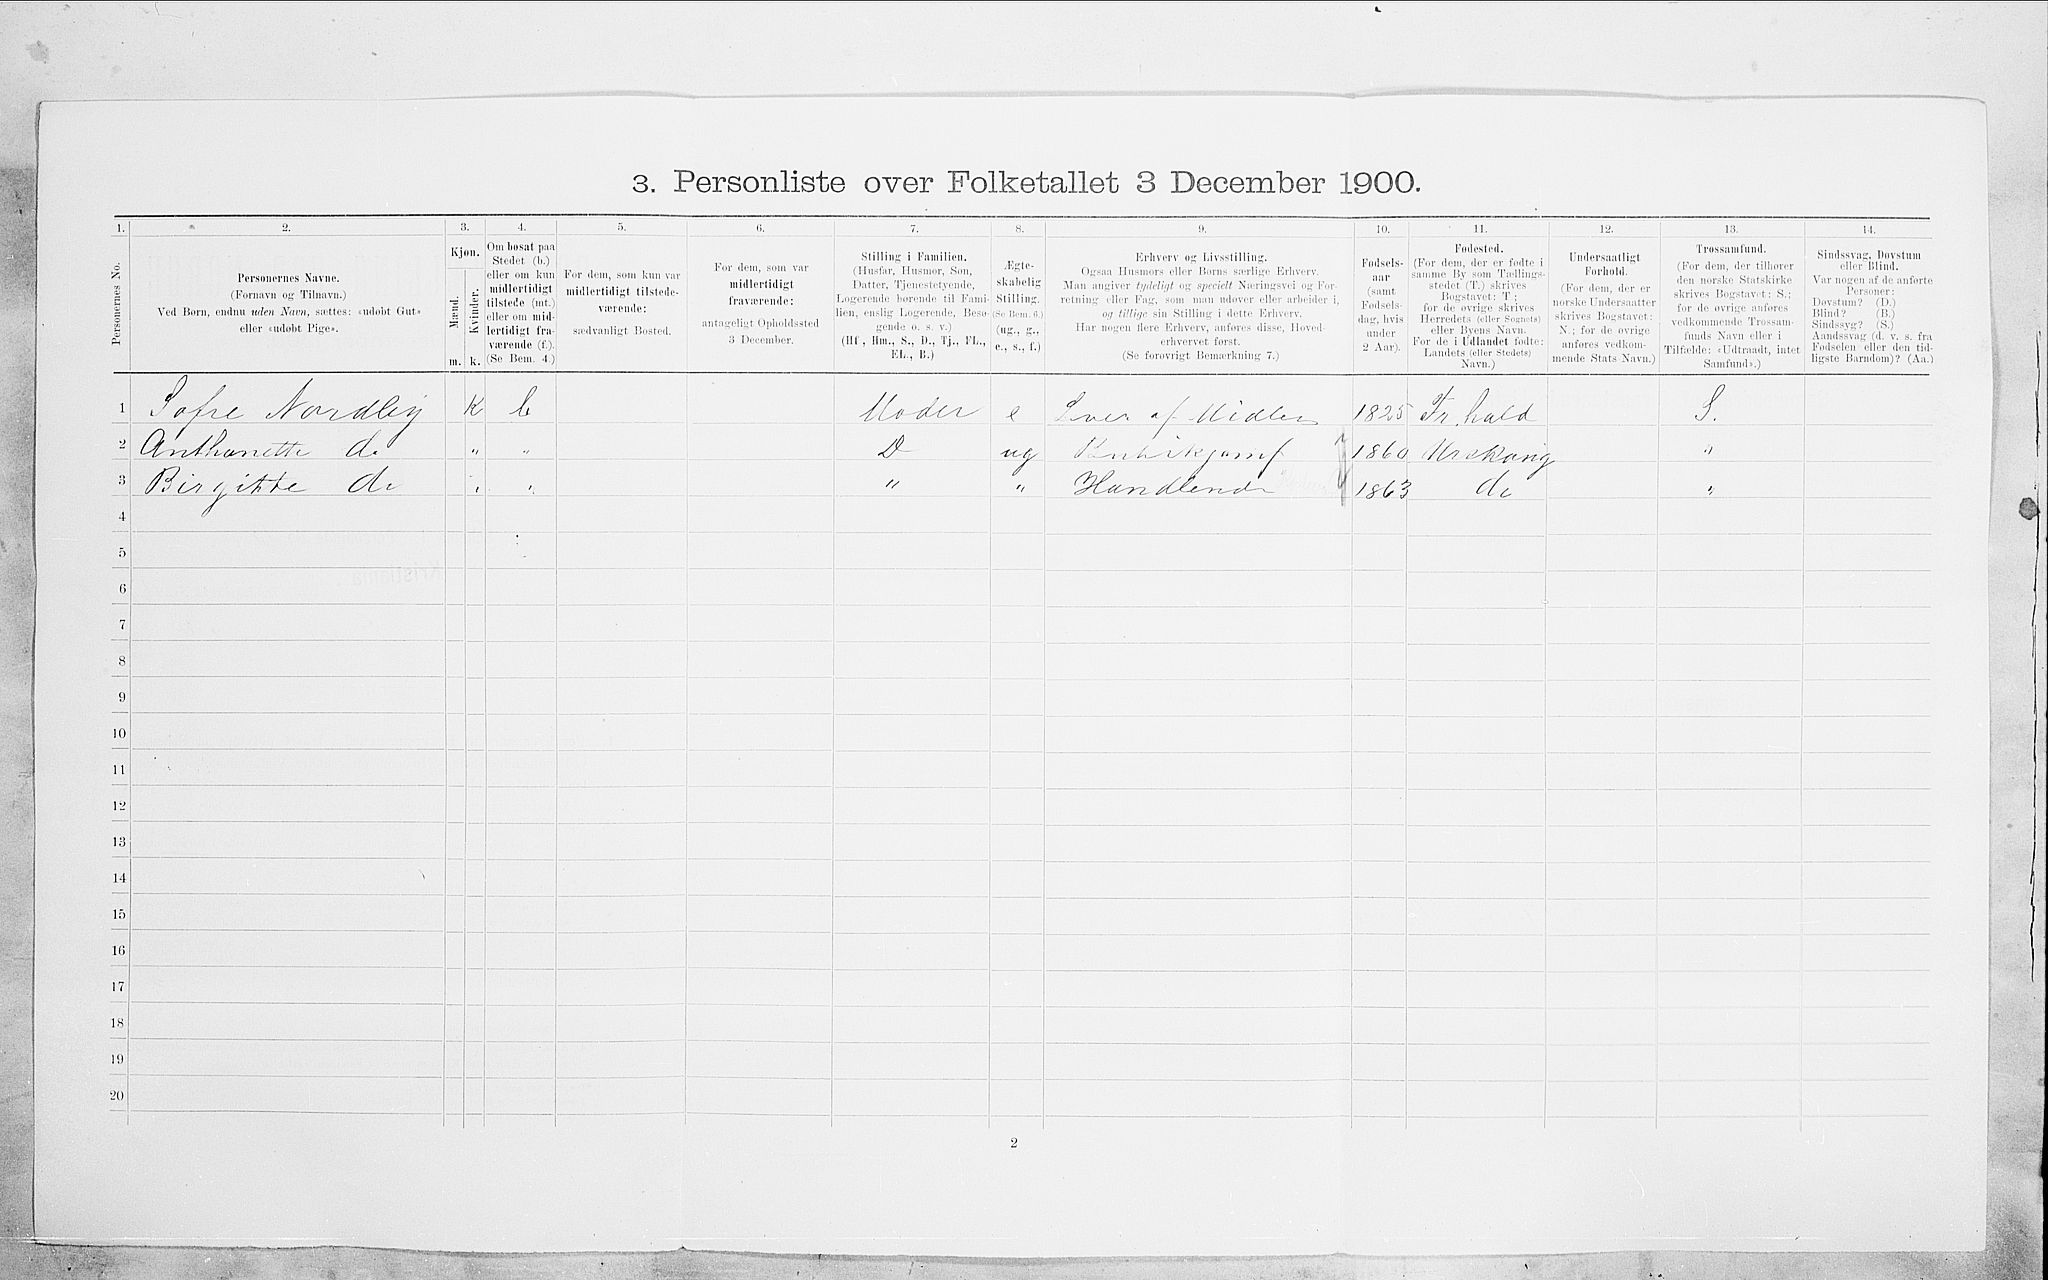 3. Personliste over Folketallet 3 December 1900.
1. 2. 3. 4. 5. 6. 7. 8. 9. 10. 11. 12. 13. 14.
Personernes No.
Personernes Navne.
(Fornavn og Tilnavn.)
Ved Børn, endnu uden Navn, sættes: «udøbt Gut»
eller «udøbt Pige».
Kjøn.
Mænd.
Kvinder.
m. k.
Om bosat paa
Stedet (b.)
eller om kun
midlertidigt
tilstede (mt.)
eller om mid-
lertidigt fra-
værende (f.).
(Se Bem. 4.)
For dem, som kun var
midlertidigt tilstede-
værende:
sædvanligt Bosted.
For dem, som var
midlertidigt
fraværende:
antageligt Opholdssted
3 December.
Stilling i Familien.
(Husfar, Husmor, Søn,
Datter, Tjenestetyende,
Logerende hørende til Fami-
lien, enslig Logerende, Besø-
gende o. s. v.)
(Hf., Hm., S., D., Tj., FL.,
EL., B.)
Ægte-
skabelig
Stilling.
(Se Bem. 6.)
(ug., g.,
e., s., f.)
Erhverv og Livsstilling.
Ogsaa Husmors eller Børns særlige Erhverv.
Man angiver tydeligt og specielt Næringsvei og For-
retning eller Fag, som man udøver eller arbeider i,
og tillige sin Stilling i dette Erhverv.
Har nogen flere Erhverv, anføres disse, Hoved-
erhvervet først.
(Se forøvrigt Bemærkning 7.)
Fødsels-
aar
(samt
Fødsels-
dag, hvis
under
2 Aar).
Fødested.
(For dem, der er fødte i
samme By som Tællings-
stedet (T.) skrives
Bogstavet: T;
for de øvrige skrives
Herredets (eller Sognets)
eller Byens Navn.
For de i Udlandet fødte:
Landets (eller Stedets)
Navn.)
Undersaatligt
Forhold.
(For dem, der er
norske Undersaatter
skrives Bogstavet:
N.; for de øvrige
anføres vedkom-
mende Stats Navn.)
Trossamfund.
(For dem, der tilhører
den norske Statskirke
skrives Bogstavet: S.;
for de øvrige anføres
vedkommende Trossam-
funds Navn eller i
Tilfælde: «Udtraadt, intet
Samfund».)
Sindssvag, Døvstum
eller Blind.
Var nogen af de anførte
Personer:
Døvstum? (D.)
Blind? (B.)
Sindssyg? (S.)
Aandssvag (d. v. s. fra
Fødselen eller den tid-
ligste Barndom)? (Aa.)
1 Sofie Nordley K b Moder e Lever af Midler 1825 Fr.hald S.
2 Anthonette do " " D ug 1860 Urskoug "
3 Birgitte do " " " " Handlende 1863 do "
4
5
6
7
8
9
10
11
12
13
14
15
16
17
18
19
20
2